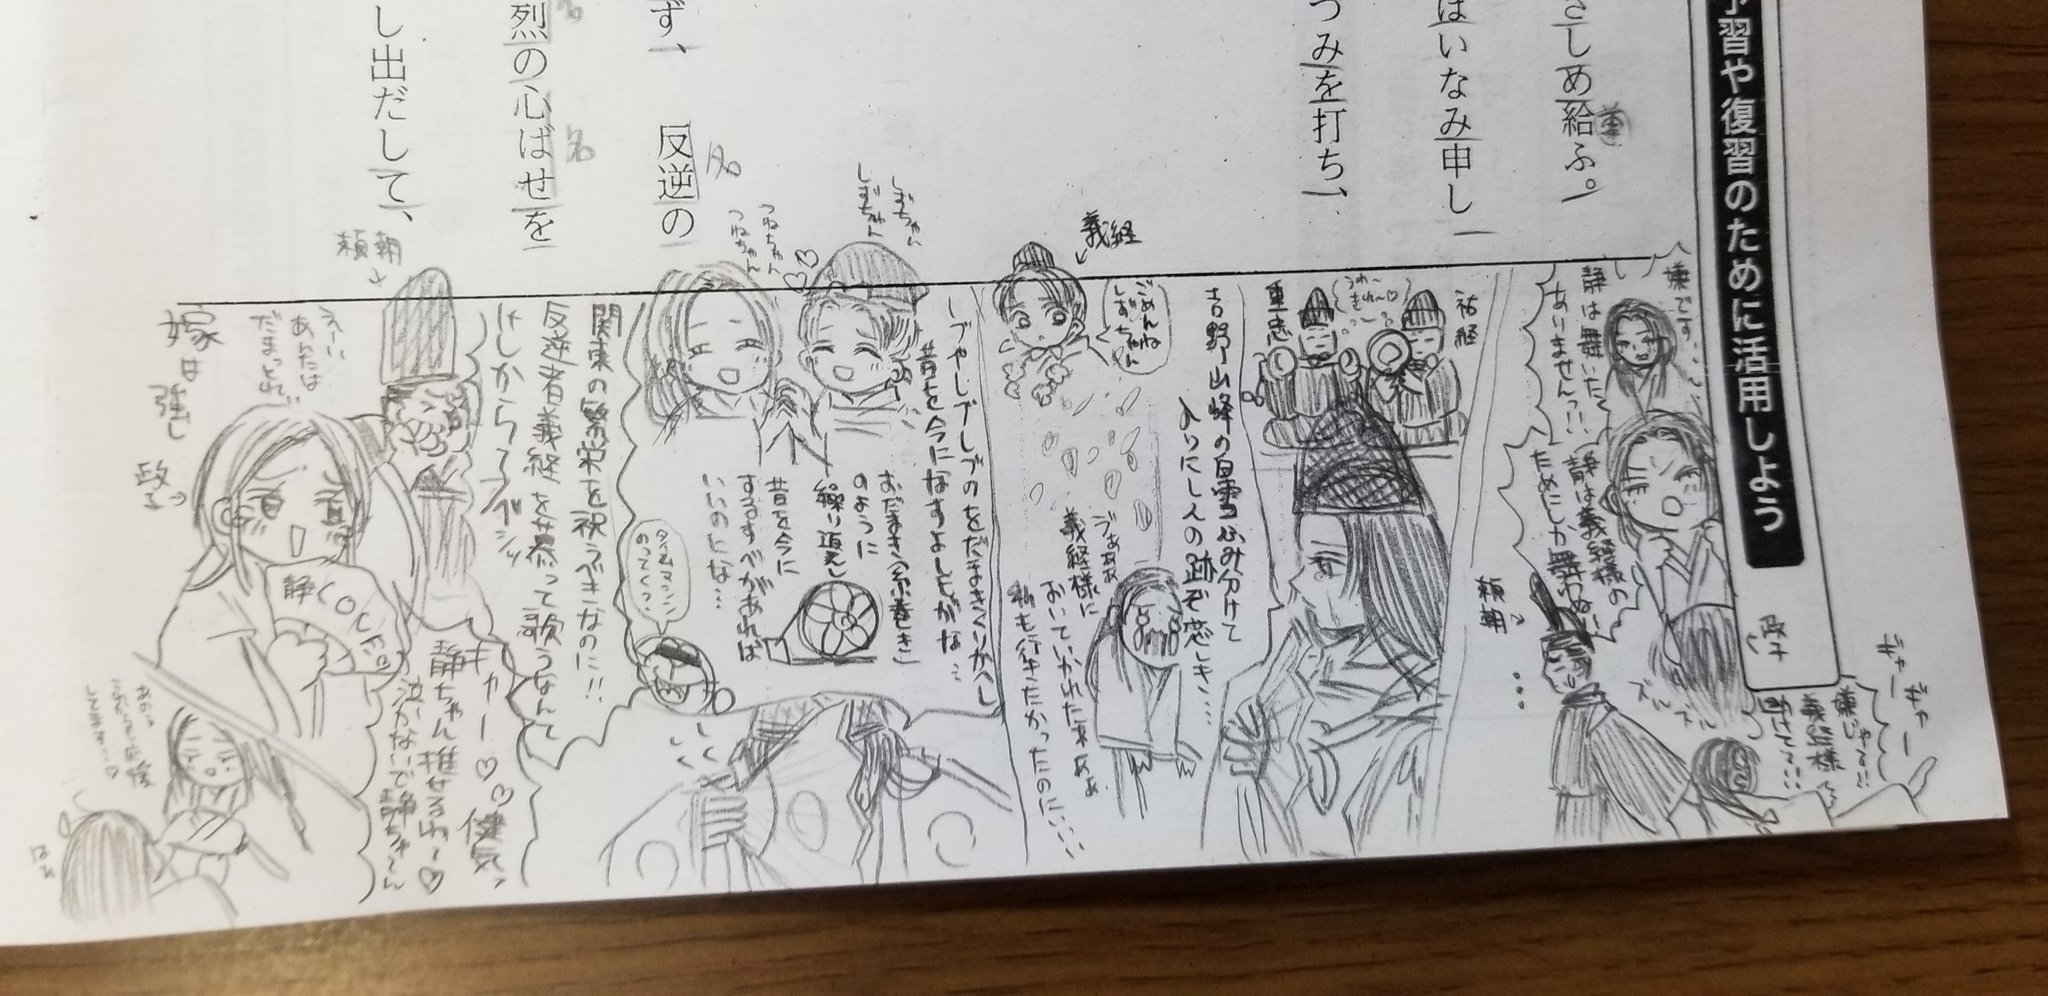 予習や復習のために活用しよう
さしめ給ふ。
はいなみ申し
つみを打ち、
ず、反逆の
烈の心ばせを
し出だして、
名
名
嫌です。
静は舞いたく
ありませんっ!!
静は義経様の
ためにしか舞わない
政子
ギャー
ギャー
嫌じゃる!!
義経様
助けてる!!
ズル
ズル
頼朝
・・・
祐経
重忠
うわ〜
きれ〜♡
吉野山峰の白雪ふみ分けて
入りにし人の跡ぞ恋しき…
義経
ごめんね
しずちゃん
ジぁぁぁ
義経様に
おいていかれたあぁぁ
私も行きたかったのに…
しずちゃん
しずちゃん
つねちゃん
つねちゃん
しづやしづしづのをだまきくりかへし
昔を今になすよしもがな…
おだまき(糸巻き)
のように
繰り返し
昔を今に
するすべがあれば
いいのにな…
タイムマシン
のってく?
関東の繁栄を祝うべきなのに!!
反逆者義経を慕って歌うなんて
けしからブイシッ
頼朝
えーい
あんたは
だまっとれ
嫁は強し
政子
静LOVE
キャー♡♡健気っ
静ちゃん推せるわ〜♡
泣かないで静ちゃ〜ん
してます…♡
はぁ